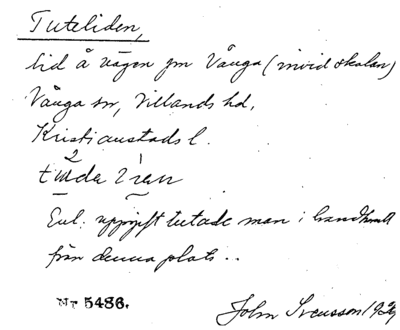 Tuteliden,
lid å vägen gm Vånga (invid skolan)
Vånga sn, Villands hd,
Kristianstads l.
2 1
Enl. uppgift tutade man i
från denna plats..
Nr 5486.
John Svensson 1929